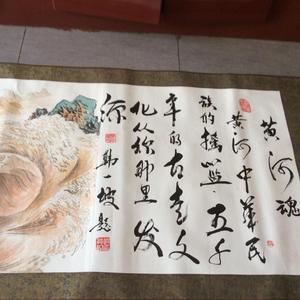 黄河魂
黄河中华民
族的摇篮五千
年的古老文
化从你那里发
源 郭一坡题